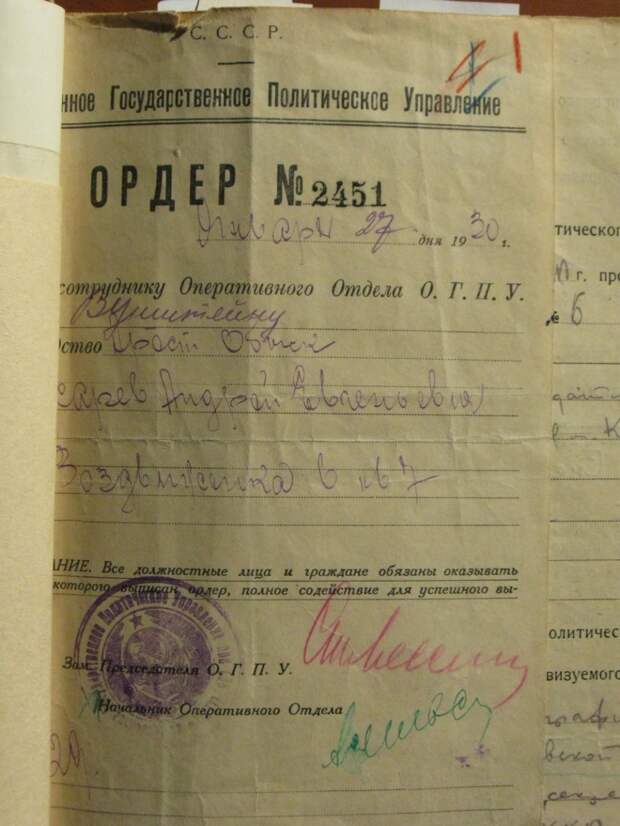 С. С. С. Р.
1
нное Государственное Политическое Управление
ОРДЕР № 2451
Января 27 дня 1930 г.
сотруднику Оперативного Отдела О. Г. П. У.
Вунштейну
ство Арест Обыск
сарев Андрей Евгеньевич
Воздвиженка 6 кв 7
АНИЕ. Все должностные лица и граждане обязаны оказывать
которого выписан ордер, полное содействие для успешного вы-
Зам. Председателя О. Г. П. У.
Начальник Оперативного Отдела
тического
г. про
№ 6
олитичес
визуемого
графи
вской